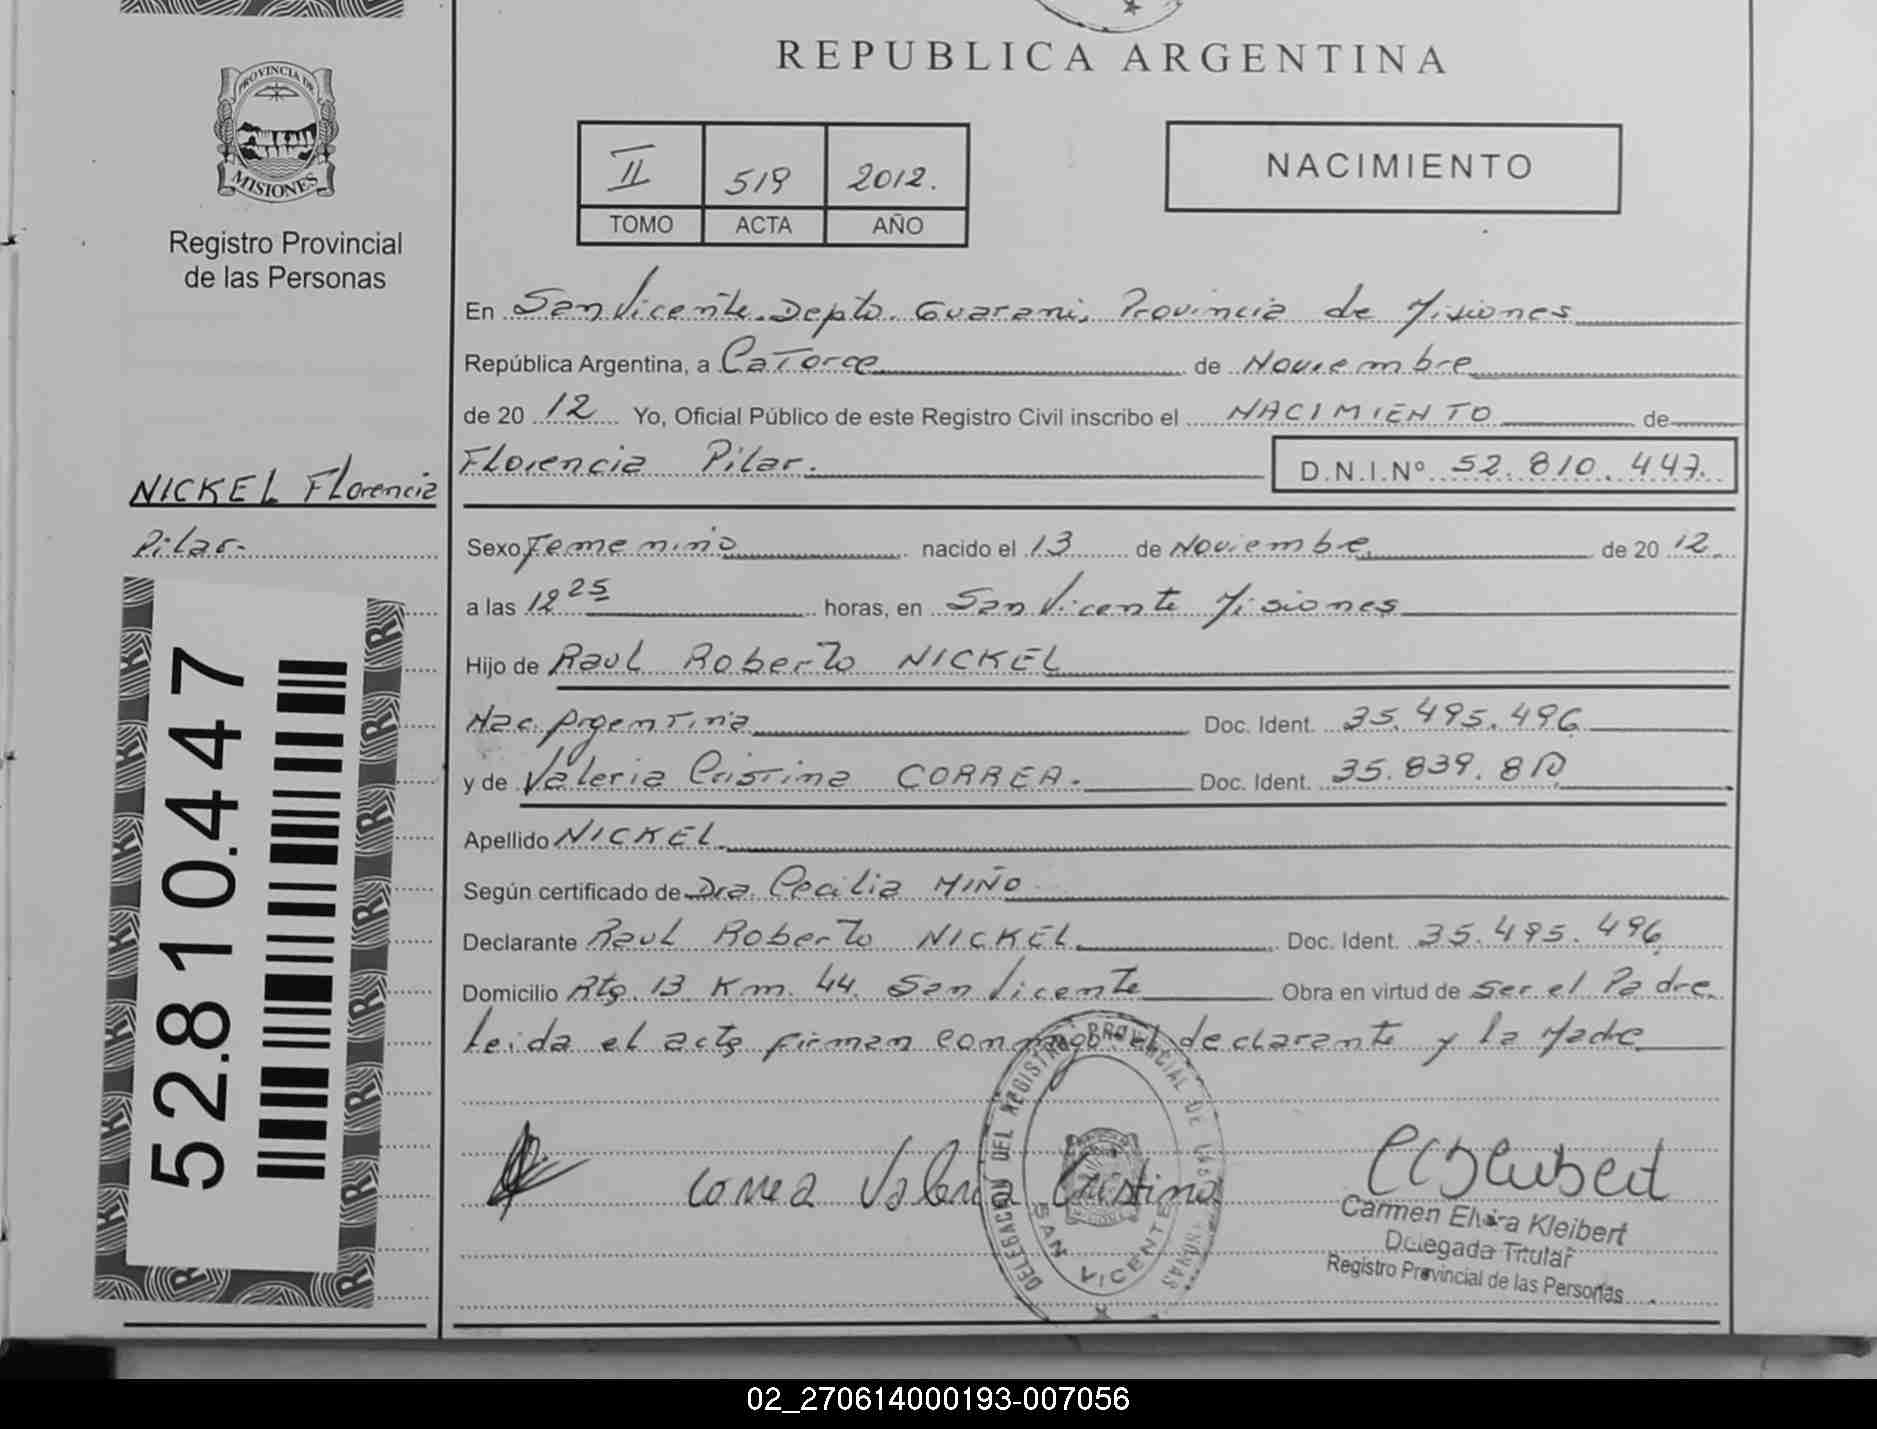 REPUBLICA ARGENTINA
PROVINCIA DE
MISIONES
Registro Provincial
de las Personas
II 519 2012.
TOMO ACTA AÑO
NACIMIENTO
En San Vicente. Depto. Guarani, Provincia de Misiones
República Argentina, a Catorce de Noviembre
de 20 12 Yo, Oficial Público de este Registro Civil inscribo el NACIMIENTO de
Florencia Pilar. D.N.I.Nº 52.810.447.
NICKEL Florencia
Pilar.
Sexo Femenino nacido el 13 de Noviembre de 20 12
a las 12 25 horas, en San Vicente Misiones
Hijo de Raul Roberto NICKEL
Nac. Argentina Doc. Ident. 35.495.496
y de Valeria Cristina CORREA. Doc. Ident. 35.839.810
Apellido NICKEL
Según certificado de Dra. Cecilia MIÑO
Declarante Raul Roberto NICKEL Doc. Ident. 35.495.496
Domicilio Rta. 13 Km. 44 San Vicente Obra en virtud de ser el Padre
Leida el acta firman conmigo el declarante y la Madre
52.810.447
Correa Valeria Cristina
DELEGACION DEL REGISTRO PROVINCIAL DE LAS PERSONAS
SAN VICENTE
Carmen Elvira Kleibert
Delegada Titular
Registro Provincial de las Personas
02_270614000193-007056